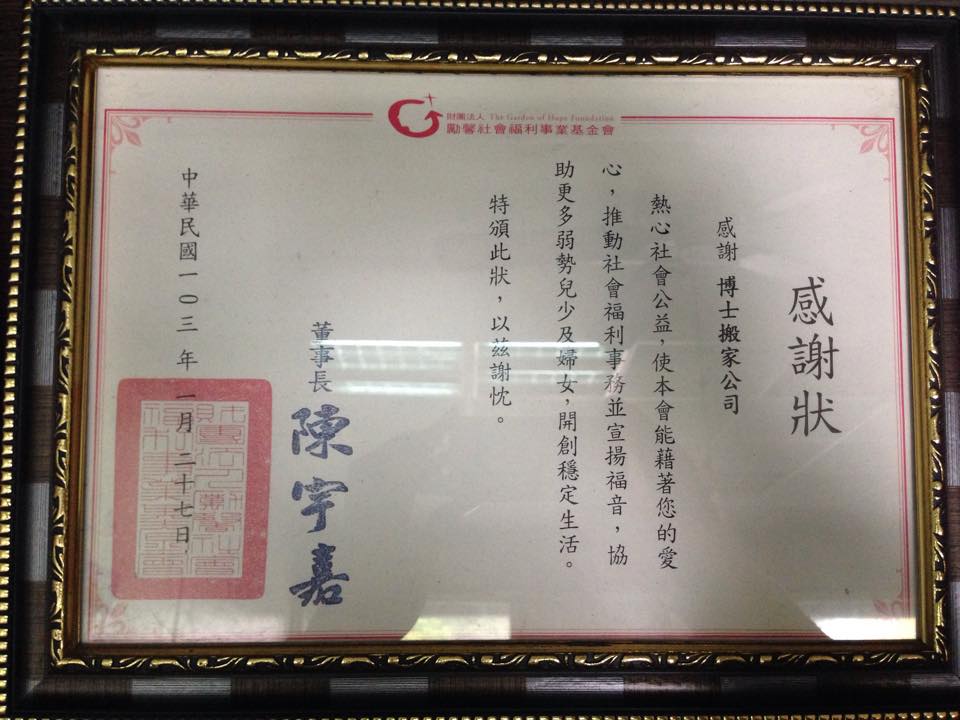 財團法人 The Garden of Hope Foundation
勵馨社會福利事業基金會
感謝狀
感謝 博士搬家公司
熱心社會公益，使本會能藉著您的愛
心，推動社會福利事務並宣揚福音，協
助更多弱勢兒少及婦女，開創穩定生活。
特頒此狀，以茲謝忱。
董事長 陳宇嘉
中華民國一０三年一月二十七日